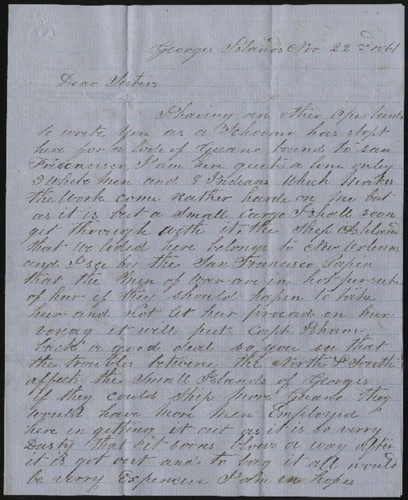 Georges Islands Nov 22nd 1861
Dear Sister
I having an other Opertunity
to write you as a Schooner has stopt
here for a lode of Guano bound to san
Francisco, I am here quite a lone only
2 white men and 8 Indians which makes
the work come rather harde on me but
as it is but a small cargo I shall soon
get through with it the Ship Ashland
that we loded here belongs to New orleans
and I see by the San Francisco Paper
that the Men of War are in hot pursute
of her if they should hapen to take
her and not let her proceed on her
voyag it will put Capt
back a good deal so you see that
the troubles between the North & South
affects the Small Islands of Georges
if they could ship more Guano they
would have more men Employed
here in getting it out as it is so verry
Dusty that it soons blows a way after
it is got out and to bag it all would
be verry Expencive I am in hopes